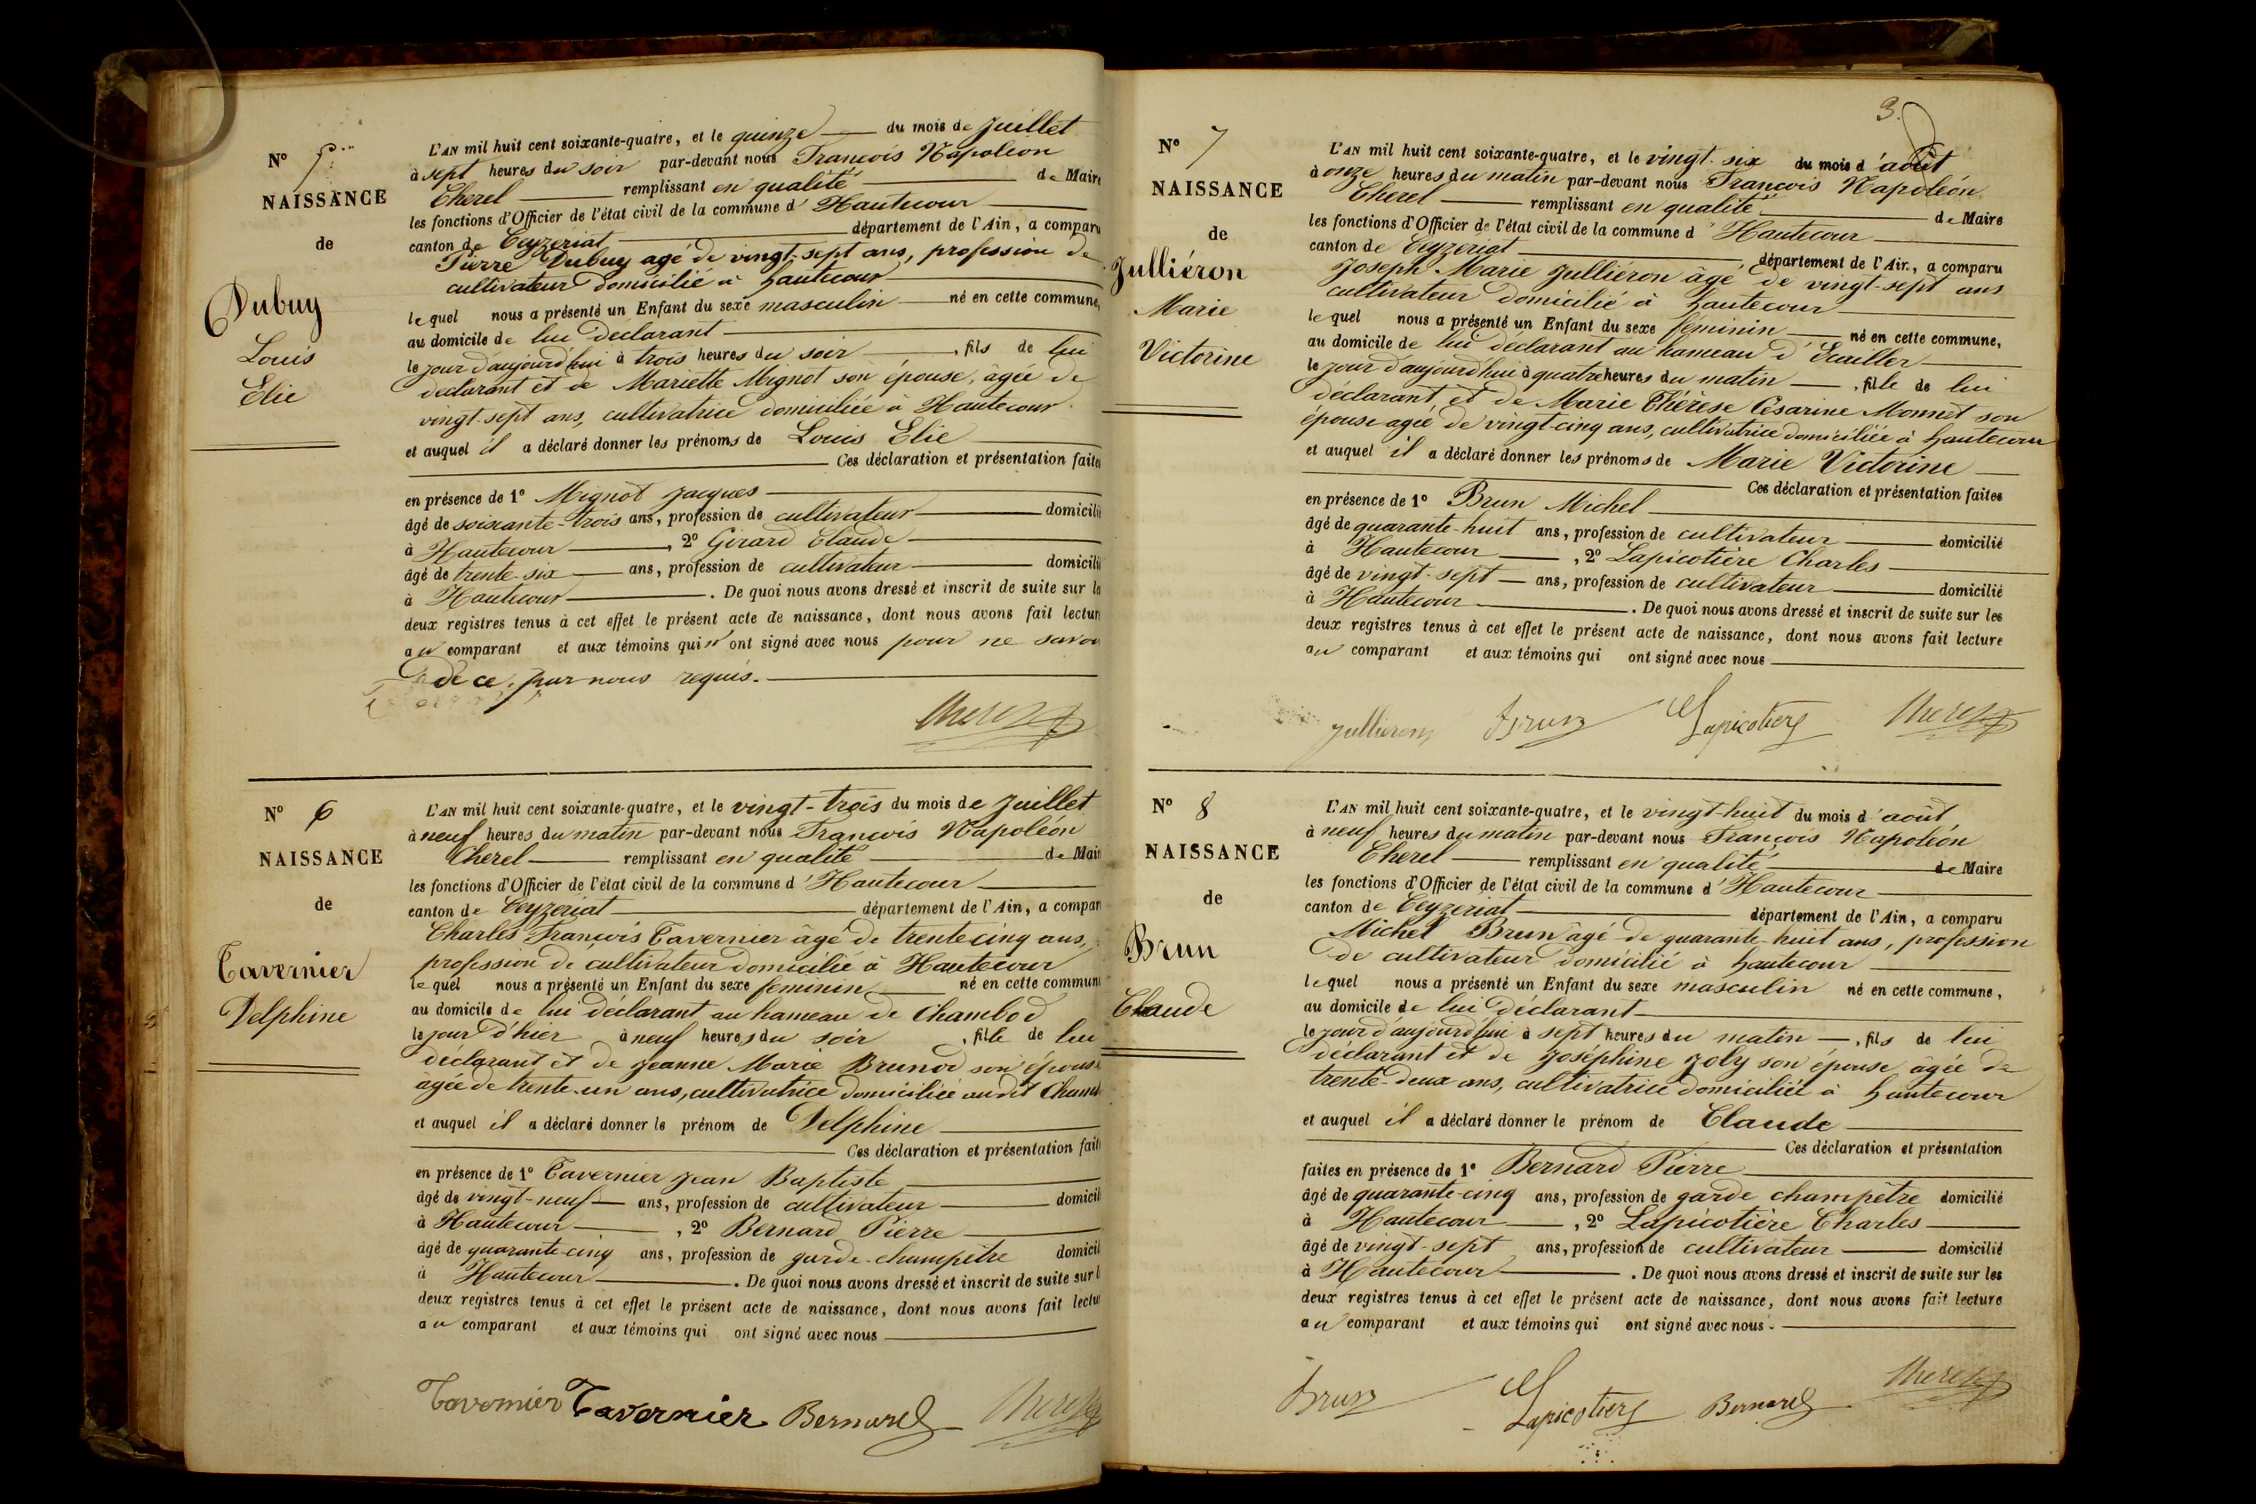 N° 5
NAISSANCE
de
Dubuy
Louis
Elie
L'AN mil huit cent soixante-quatre, et le quinze du mois de Juillet
à sept heures du soir par-devant nous François Napoléon
Cherel remplissant en qualité de Maire
les fonctions d'Officier de l'état civil de la commune d'Hautecour
canton de Ceyzeriat département de l'Ain, a comparu
Pierre Dubuy agé de vingt-sept ans, profession de
cultivateur domicilié à hautecour
lequel nous a présenté un Enfant du sexe masculin né en cette commune,
au domicile de lui déclarant
le jour d'aujourd'hui à trois heures du soir, fils de lui
déclarant et de Mariette Mignot son épouse, agée de
vingt-sept ans, cultivatrice domiciliée à Hautecour
et auquel il a déclaré donner les prénoms de Louis Elie
Ces déclaration et présentation faites
en présence de 1° Mignot Jacques
âgé de soixante-trois ans, profession de cultivateur domicilié
à Hautecour, 2° Girard Claude
âgé de trente-six ans, profession de cultivateur domicilié
à Hautecour. De quoi nous avons dressé et inscrit de suite sur la
deux registres tenus à cet effet le présent acte de naissance, dont nous avons fait lectur
au comparant et aux témoins qui n'ont signé avec nous pour ne savoi
de ce, par nous requis.
Cherel
N° 6
NAISSANCE
de
Tavernier
Delphine
L'AN mil huit cent soixante-quatre, et le vingt-trois du mois de Juillet
à neuf heures du matin par-devant nous François Napoléon
Cherel remplissant en qualité de Mair
les fonctions d'Officier de l'état civil de la commune d'Hautecour
canton de Ceyzeriat département de l'Ain, a compar
Charles François Tavernier âgé de trente cinq ans,
profession de cultivateur domicilié à Hautecour
lequel nous a présenté un Enfant du sexe feminin né en cette commune
au domicile de lui déclarant au hameau de Chambod
le jour d'hier à neuf heures du soir, fille de lui
déclarant et de Jeanne Marie Brunod son épouse
agée de trente-un ans, cultivatrice domiciliée audit Chamb
et auquel il a déclaré donner le prénom de Delphine
Ces déclaration et présentation fait
en présence de 1° Tavernier Jean Baptiste
âgé de vingt-neuf ans, profession de cultivateur domicil
à Hautecour, 2° Bernard Pierre
âgé de quarante-cinq ans, profession de garde-champêtre domicil
à Hautecour. De quoi nous avons dressé et inscrit de suite sur l
deux registres tenus à cet effet le présent acte de naissance, dont nous avons fait lectu
au comparant et aux témoins qui ont signé avec nous
Tavernier Tavernier Bernard Cherel
3.
N° 7
NAISSANCE
de
Julliéron
Marie
Victorine
L'AN mil huit cent soixante-quatre, et le vingt-six du mois d'août
à onze heures du matin par-devant nous François Napoléon
Cherel remplissant en qualité de Maire
les fonctions d'Officier de l'état civil de la commune d'Hautecour
canton de Ceyzeriat, département de l'Ain, a comparu
Joseph Marie Julliéron âgé de vingt-sept ans
cultivateur domicilié à hautecour
lequel nous a présenté un Enfant du sexe féminin né en cette commune,
au domicile de lui déclarant au hameau d'Écuiller
le jour d'aujourd'hui à quatre heures du matin, fille de lui
déclarant et de Marie Thérèse Césarine Monnet son
épouse agée de vingt-cinq ans, cultivatrice domiciliée à hautecour
et auquel il a déclaré donner les prénoms de Marie Victorine
Ces déclaration et présentation faites
en présence de 1° Brun Michel
âgé de quarante-huit ans, profession de cultivateur domicilié
à Hautecour, 2° Lapicotière Charles
âgé de vingt-sept ans, profession de cultivateur domicilié
à Hautecour. De quoi nous avons dressé et inscrit de suite sur les
deux registres tenus à cet effet le présent acte de naissance, dont nous avons fait lecture
au comparant et aux témoins qui ont signé avec nous
Julliéron Brun Lapicotiere Cherel
N° 8
NAISSANCE
de
Brun
Claude
L'AN mil huit cent soixante-quatre, et le vingt-huit du mois d'août
à neuf heures du matin par-devant nous François Napoléon
Cherel remplissant en qualité de Maire
les fonctions d'Officier de l'état civil de la commune d'Hautecour
canton de Ceyzeriat département de l'Ain, a comparu
Michel Brun agé de quarante-huit ans, profession
de cultivateur domicilié à hautecour
lequel nous a présenté un Enfant du sexe masculin né en cette commune,
au domicile de lui déclarant
le jour d'aujourd'hui à sept heures du matin, fils de lui
déclarant et de Joséphine Joly son épouse, agée de
trente-deux ans, cultivatrice domiciliée à hautecour
et auquel il a déclaré donner le prénom de Claude
Ces déclaration et présentation
faites en présence de 1° Bernard Pierre
âgé de quarante-cinq ans, profession de garde champêtre domicilié
à Hautecour, 2° Lapicotière Charles
âgé de vingt-sept ans, profession de cultivateur domicilié
à Hautecour. De quoi nous avons dressé et inscrit de suite sur les
deux registres tenus à cet effet le présent acte de naissance, dont nous avons fait lecture
au comparant et aux témoins qui ont signé avec nous.
Brun Lapicotiere Bernard Cherel